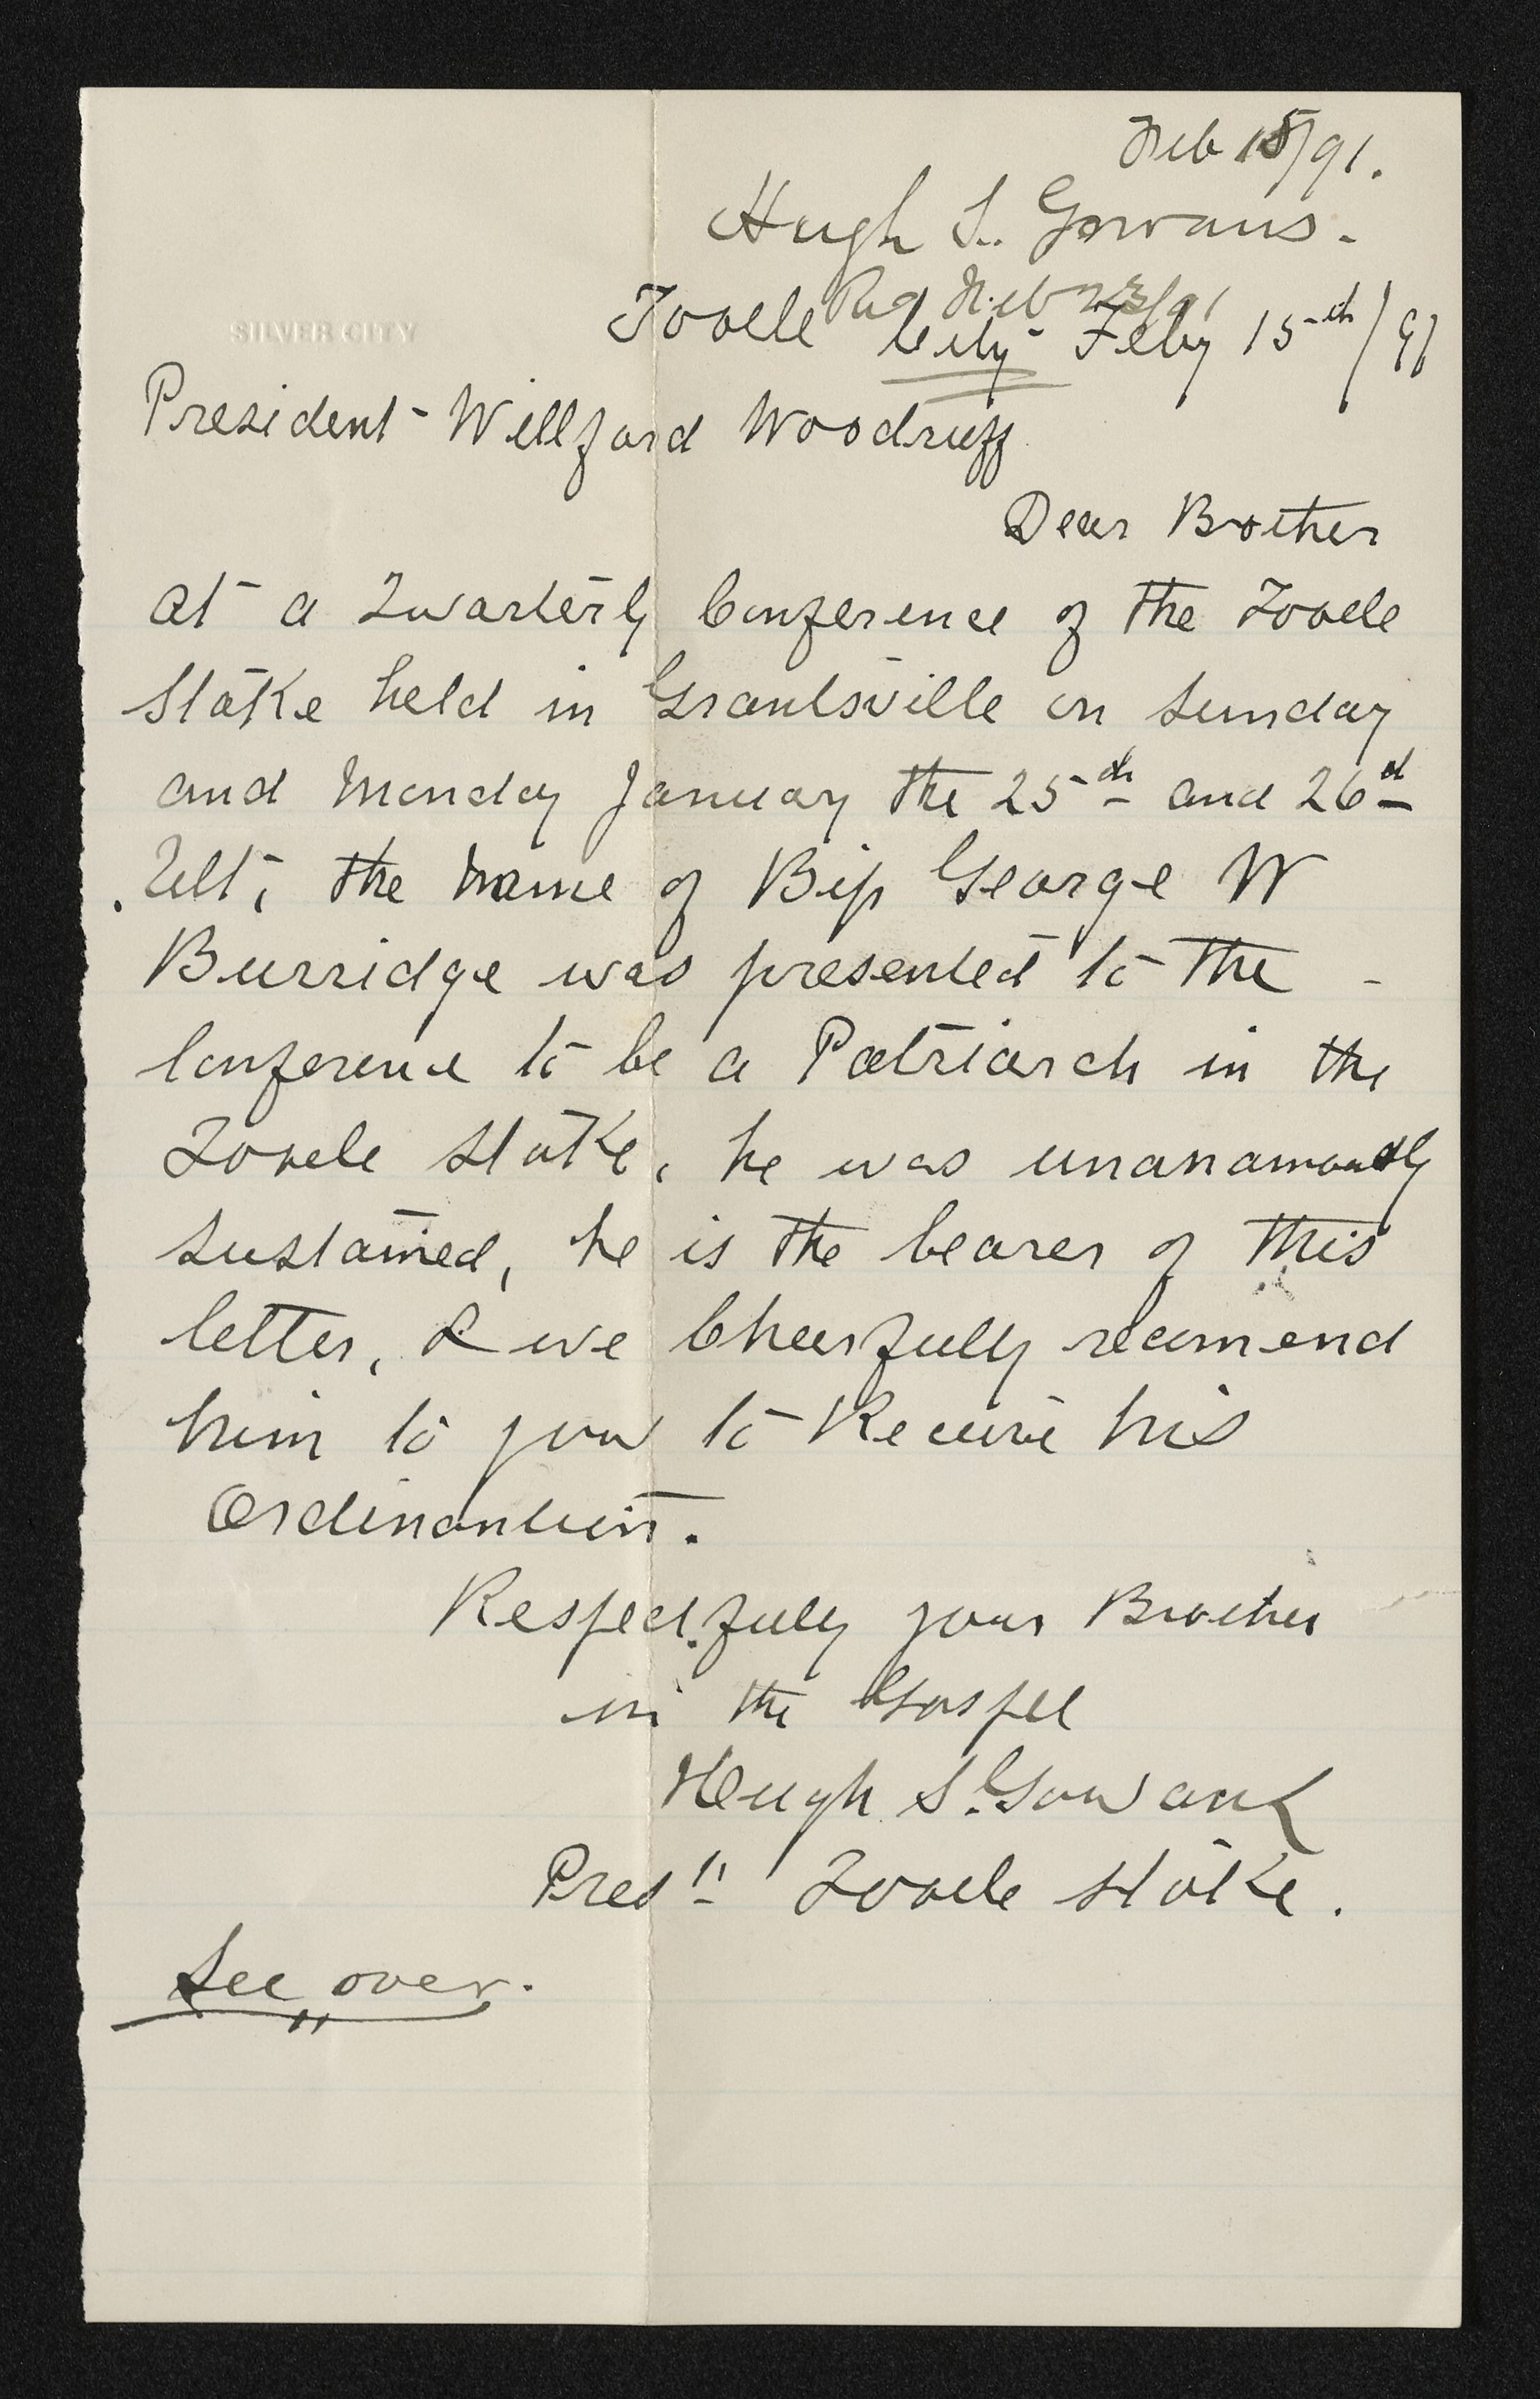 Feb 15/91.
Hugh S. Gowans.
Recd Feb 23/91
SILVER CITY
Tooele City Feby 15th/91
President Willford Woodruff
Dear Brother
at a Quarterly Conference of the Tooele
Stake held in Grantsville on Sunday
and Monday January the 25th and 26th
Ult, the Name of Bip George W
Burridge was presented to the -
Conference to be a Patriarch in the
Tooele Stake, he was unanamously
Sustained, he is the bearer of this
letter, & we Cheerfully recomend
him to you to Receive his
Ordinantion.
Respectfully your Brother
in the Gospel
Hugh S. Gowans
Prest Tooele Stake.
See over.